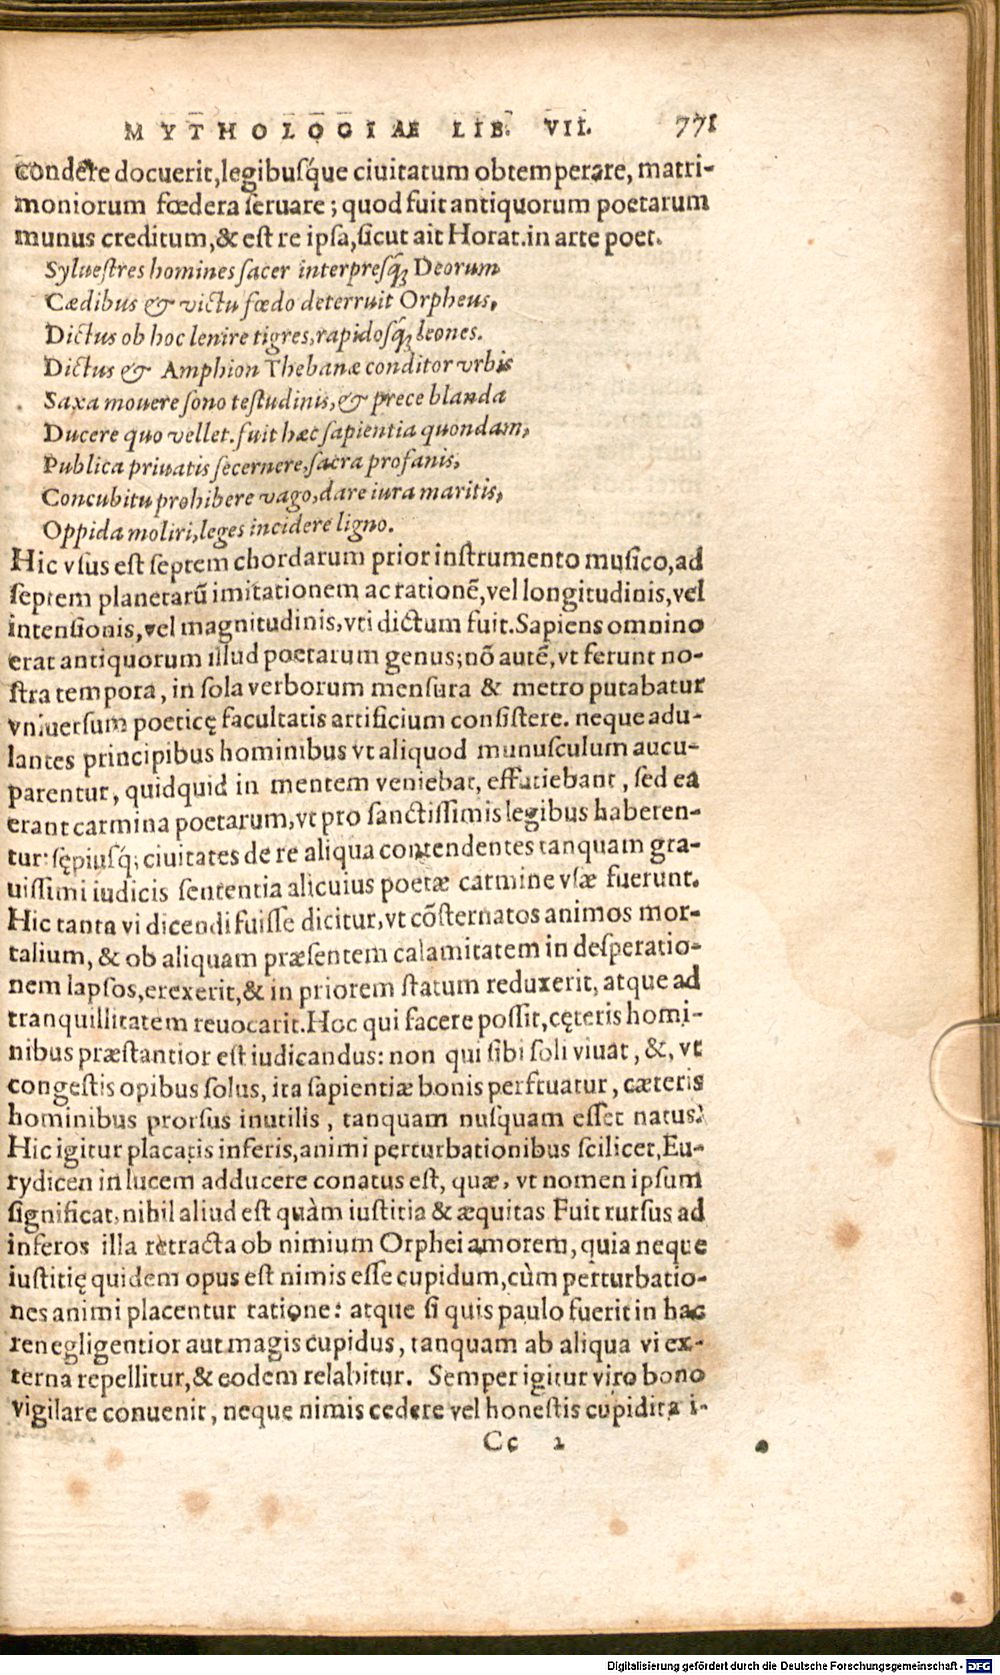 MYTHOLOGIAE LIB. VII. 771
condere docuerit,legibusq́ue ciuitatum obtemperare, matri-
moniorum fœdera seruare; quod fuit antiquorum poetarum
munus creditum,& est re ipsa,sicut ait Horat.in arte poet.
Syluestres homines sacer interpresq́; Deorum
Cædibus & victu fœdo deterruit Orpheus,
Dictus ob hoc lenire tigres,rapidosq́; leones.
Dictus & Amphion Thebanæ conditor vrbis
Saxa mouere sono testudinis,& prece blanda
Ducere quo vellet. fuit hæc sapientia quondam,
Publica priuatis secernere,sacra profanis,
Concubitu prohibere vago,dare iura maritis,
Oppida moliri,leges incidere ligno.
Hic vsus est septem chordarum prior instrumento musico,ad
septem planetarū imitationem ac rationē,vel longitudinis,vel
intensionis,vel magnitudinis,vti dictum fuit.Sapiens omnino
erat antiquorum illud poetarum genus;nō autē,vt ferunt no-
stra tempora, in sola verborum mensura & metro putabatur
vniuersum poeticę facultatis artificium consistere. neque adu-
lantes principibus hominibus vt aliquod munusculum aucu-
parentur, quidquid in mentem veniebat, effutiebant, sed ea
erant carmina poetarum,vt pro sanctissimis legibus haberen-
tur: sępiusq́; ciuitates de re aliqua contendentes tanquam gra-
uissimi iudicis sententia alicuius poetæ carmine vsæ fuerunt.
Hic tanta vi dicendi fuisse dicitur,vt cōsternatos animos mor-
talium, & ob aliquam præsentem calamitatem in desperatio-
nem lapsos,erexerit,& in priorem statum reduxerit, atque ad
tranquillitatem reuocarit.Hoc qui facere possit,cęteris homi-
nibus præstantior est iudicandus: non qui sibi soli viuat, &, vt
congestis opibus solus, ita sapientiæ bonis perfruatur, cæteris
hominibus prorsus inutilis, tanquam nusquam esset natus.
Hic igitur placatis inferis,animi perturbationibus scilicet,Eu-
rydicen in lucem adducere conatus est, quæ, vt nomen ipsum
significat,nihil aliud est quàm iustitia & æquitas Fuit rursus ad
inferos illa retracta ob nimium Orphei amorem, quia neque
iustitię quidem opus est nimis esse cupidum,cùm perturbatio-
nes animi placentur ratione: atque si quis paulo fuerit in hac
re negligentior aut magis cupidus, tanquam ab aliqua vi ex-
terna repellitur,& eodem relabitur. Semper igitur viro bono
vigilare conuenit, neque nimis cedere vel honestis cupidita i-
Cc 2
Digitalisierung gefördert durch die Deutsche Forschungsgemeinschaft - DFG